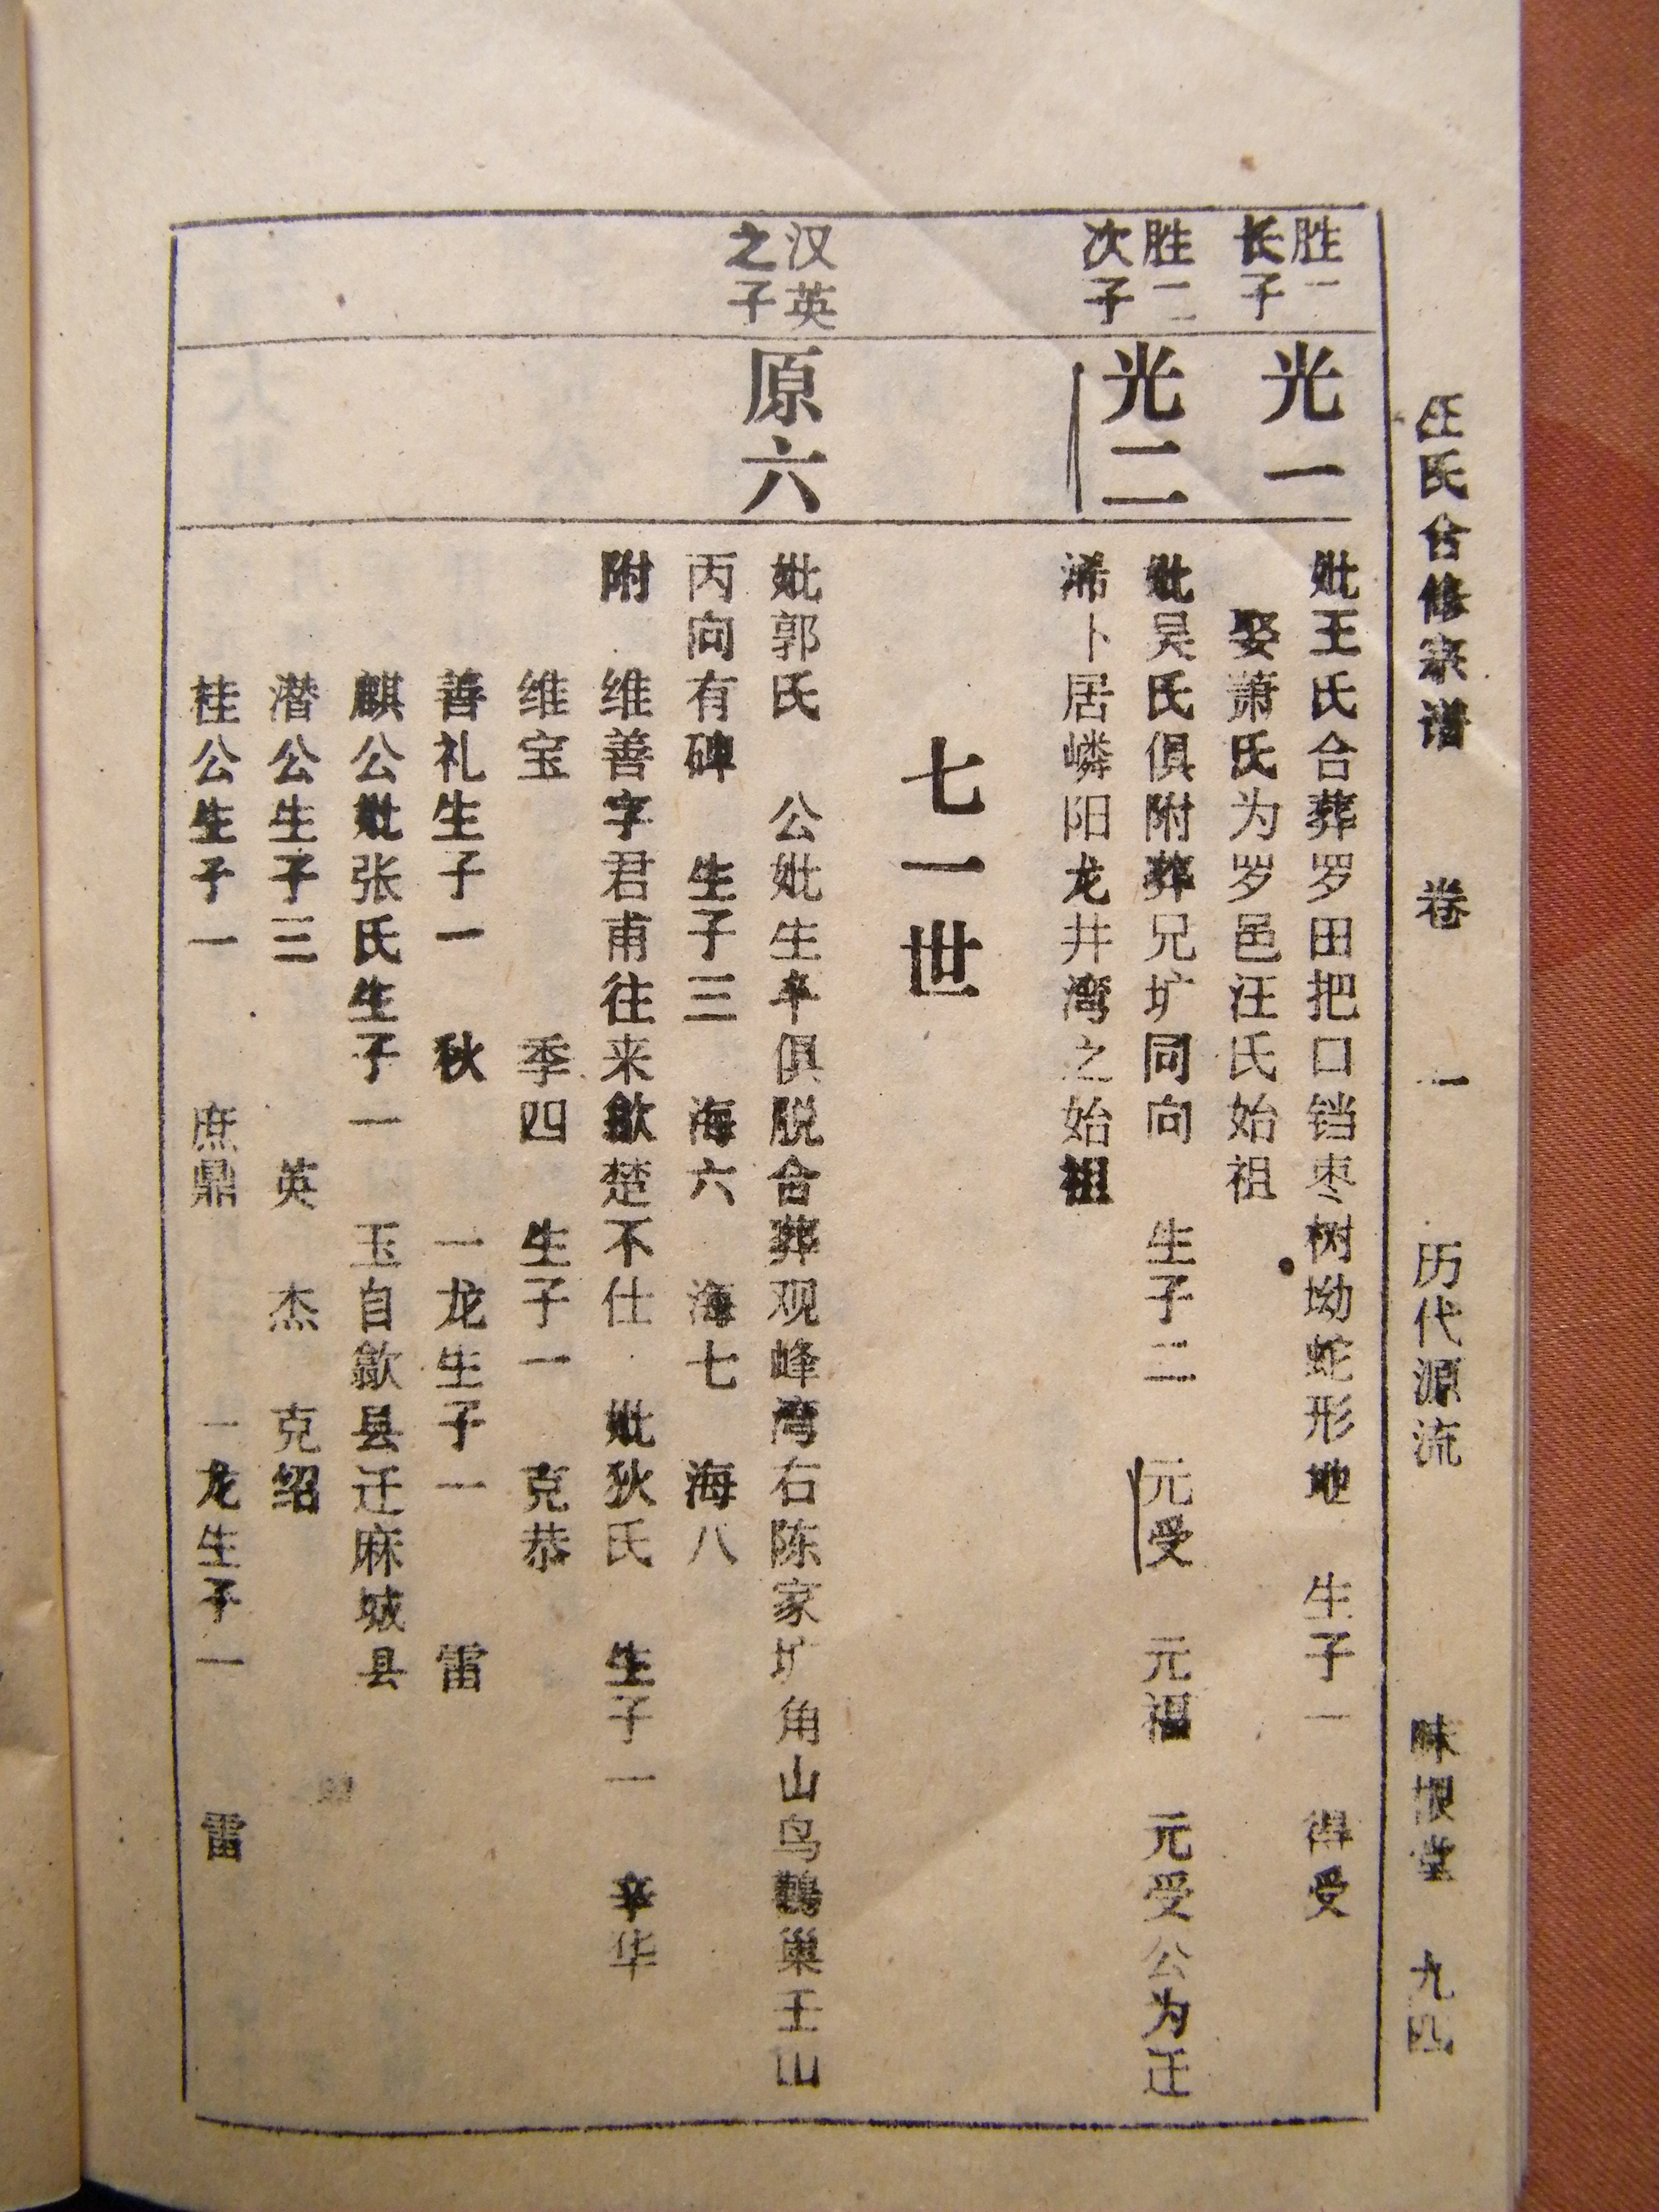 汪氏合修宗谱 卷一 历代源流 味根堂 九四
胜一
长子
光一
妣王氏合葬罗田把口铛枣树坳蛇形地 生子一 得受
娶萧氏为罗邑汪氏始祖
胜二
次子
光二
妣吴氏俱附葬兄圹同向 生子二 元受 元福 元受公为迁
浠卜居嶙阳龙井湾之始祖
七一世
汉英
之子
原六
妣郭氏 公妣生卒俱脱合葬观峰湾右陈家圹角山鸟鹊巢王山
丙向有碑 生子三 海六 海七 海八
附 维善字君甫往来歙楚不仕 妣狄氏 生子一 辛华
维宝 季四 生子一 克恭
善礼生子一 秋 一龙生子一 雷
麒公妣张氏生子一 玉自歙县迁麻城县
潜公生子三 英 杰 克绍
桂公生子一 庶鼎 一龙生子一 雷